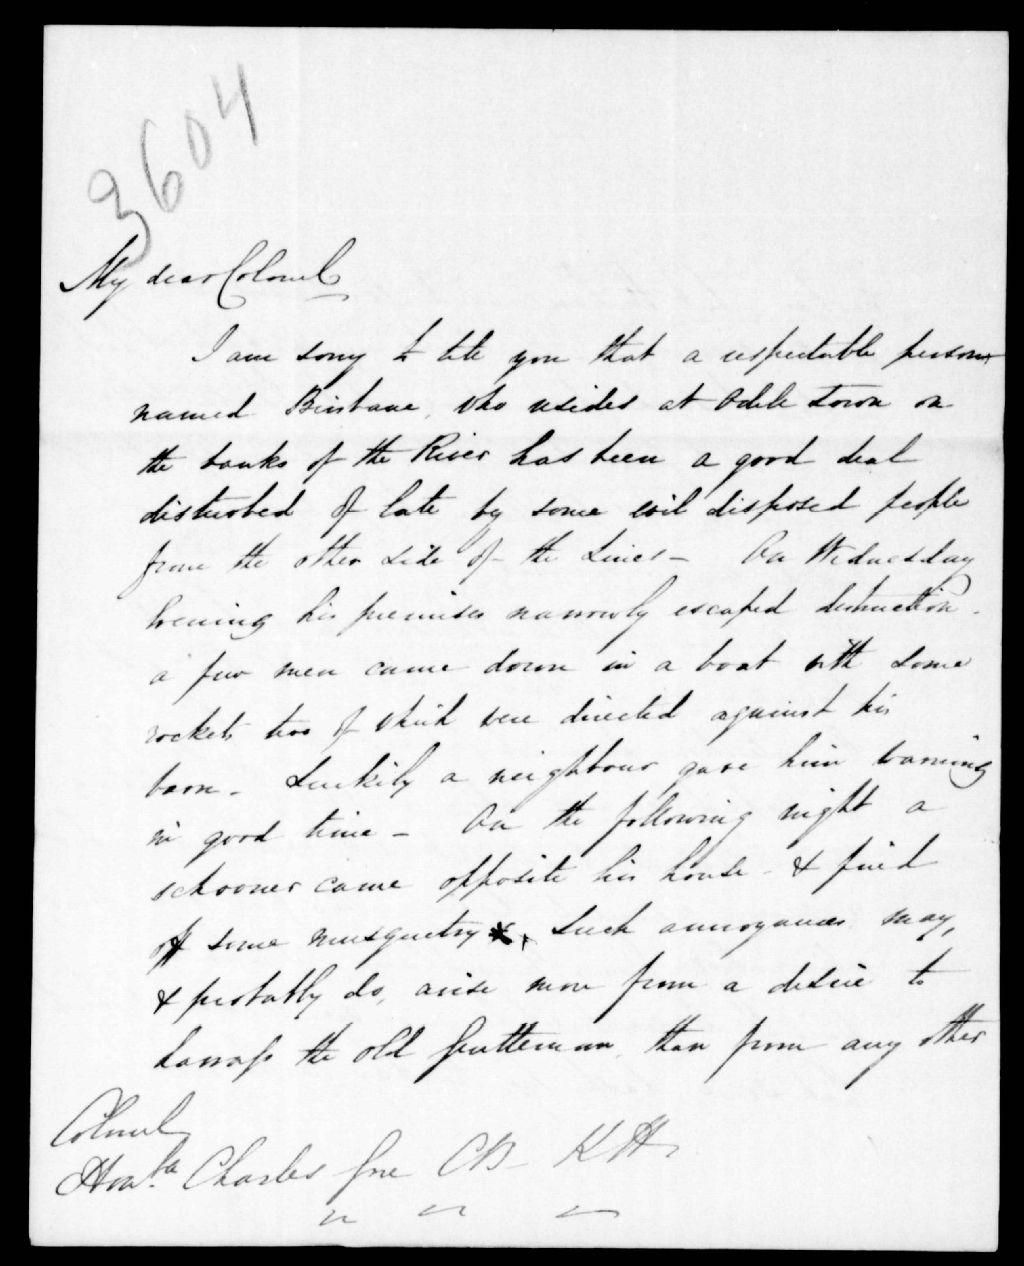 3604
My dear Colonel
I am sorry to tell you that a respectable person
named Brisbane, who resides at Odell Town on
the banks of the River has been a good deal
disturbed of late by some evil disposed people
from the other side of the Lines - On Wednesday
Evening his premises narrowly escaped destruction -
a few men came down in a boat with some
rockets two of which were directed against his
barn - Luckily a neighbour gave him warning
in good time - On the following night a
schooner came opposite his house - & fired
off some musquetry. Such annoyances may,
& probably do, arise more from a desire to
harrass the old Gentleman, than from any other
Colonel
Honble Charles Gore CB - KH